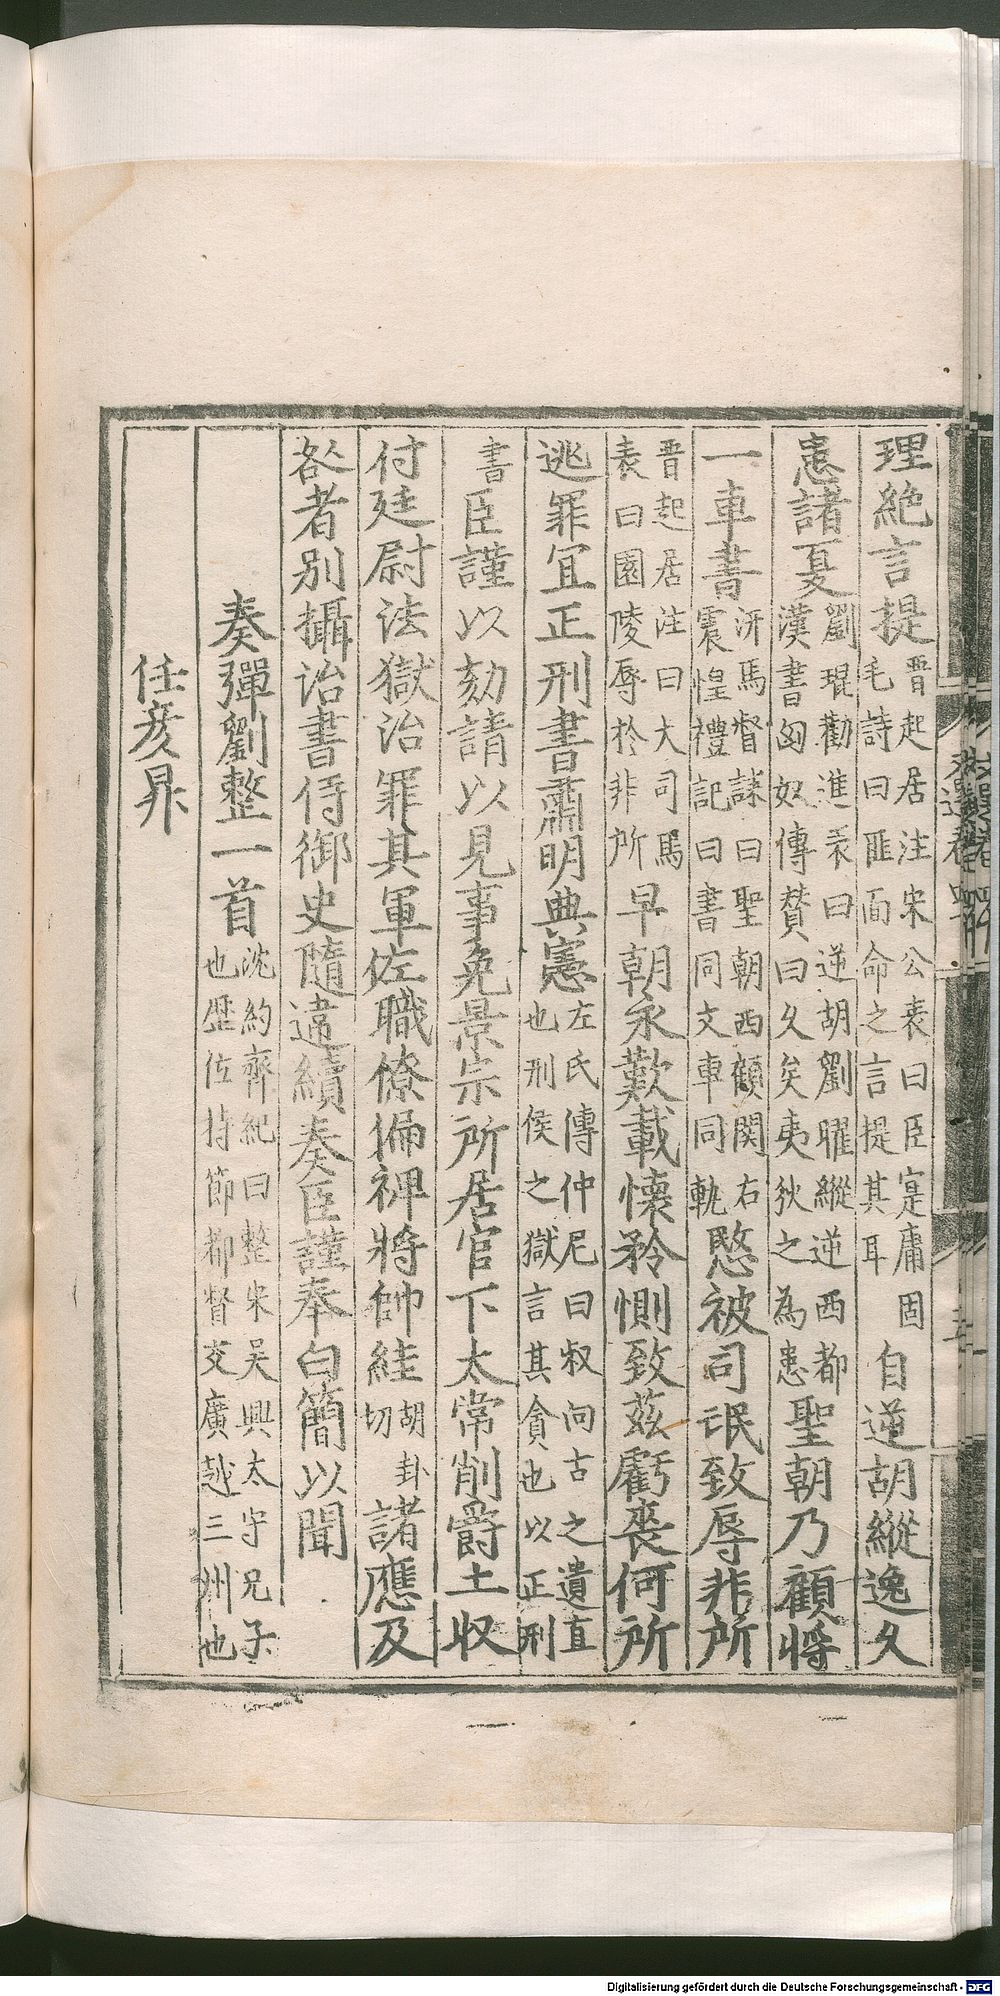 理絶言提晋起居注宋公表曰臣寔庸固毛詩曰匪面命之言提其耳自逆胡縱逸久
患諸夏劉琨勸進表曰逆胡劉曜縱逆西都漢書匈奴傳賛曰久矣夷狄之為患聖朝乃顧將
一車書汧馬督誄曰聖朝西顧関右震惶禮記曰書同文車同軌愍被司氓致辱非所
晋起居注曰大司馬表曰園陵辱於非所早朝永歎載懷矜惻致茲虧喪何所
逃罪宜正刑書肅明典憲左氏傳仲尼曰叔向古之遺直也刑侯之獄言其貪也以正刑
書臣謹以劾請以見事免景宗所居官下太常削爵土収
付廷尉法獄治罪其軍佐職僚偏裨將帥絓胡卦切諸應及
咎者别攝治書侍御史隨違續奏臣謹奉白簡以聞
奏彈劉整一首沈約齊紀曰整宋吴興太守兄子也歴位持節都督交廣越三州也
任彦昇
Digitalisierung gefördert durch die Deutsche Forschungsgemeinschaft - DFG